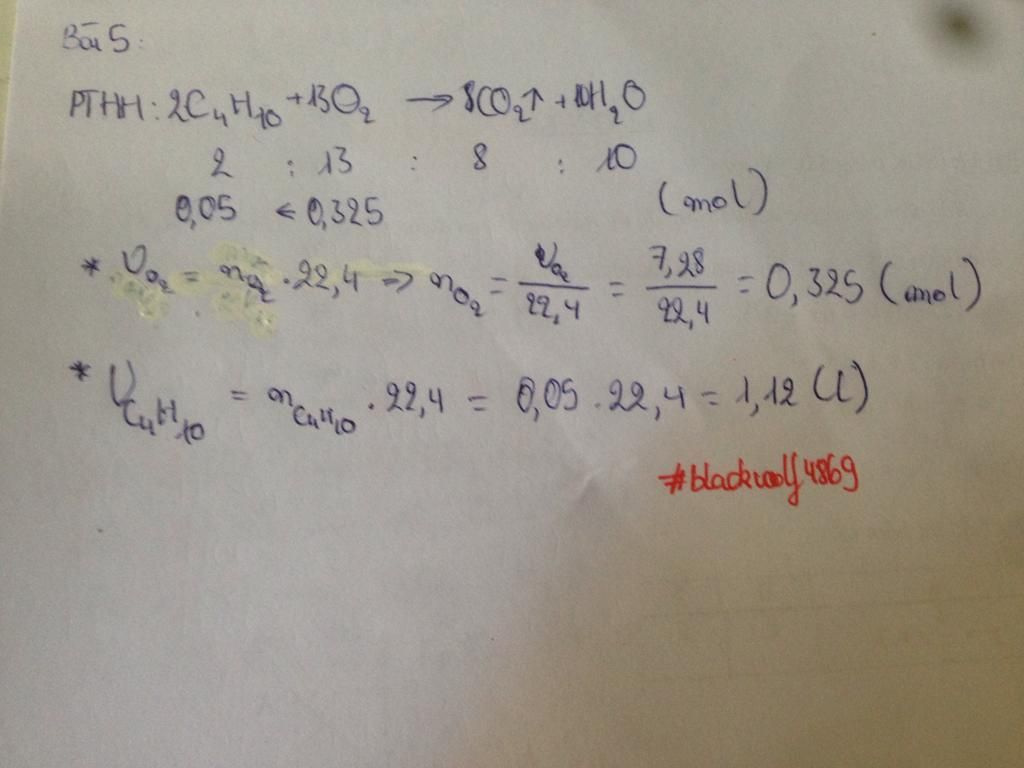 Bài 5:
PTHH: 2C₄H₁₀ + 13O₂ → 8CO₂↑ + 10H₂O
2 : 13 : 8 : 10
0,05 ← 0,325 (mol)
* V_O₂ = n_O₂ . 22,4 => n_O₂ = V_O₂/22,4 = 7,28/22,4 = 0,325 (mol)
* V_C₄H₁₀ = n_C₄H₁₀ . 22,4 = 0,05 . 22,4 = 1,12 (l)
#blackwolf4869